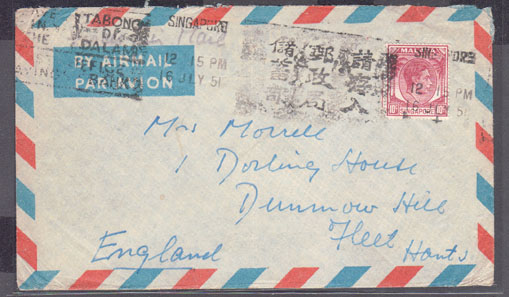 TABONG
DI-
DALAM
SINGAPORE
12 15 PM
6 JLY 51
BY AIRMAIL
PAR AVION
儲蓄 郵政局 請存入
MALAYA
SINGAPORE
12 PM
51
10c
SINGAPORE
Mrs Morrell
1 Dorling House
Dunmow Hill
Fleet
Hants
England